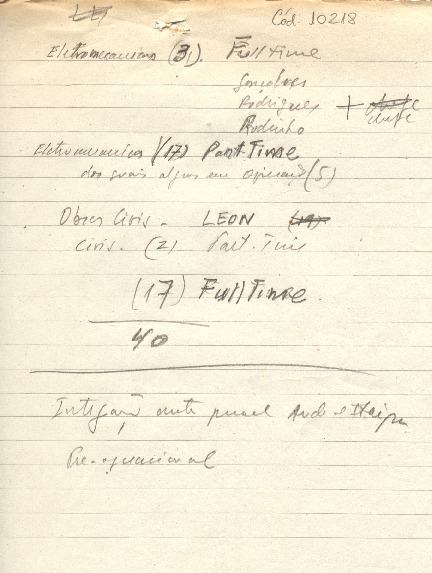 Cód. 10218
Eletromecanicos (3). Full Time
Gonçalves
Rodrigues +
Rodinho
Eletromecanico (17) Part-Time
dos quais alguns em operação (5)
Obras Civis. LEON
Civis. (2) Part. Time
(17) Full Time
40
Integração ente
Pre-operacional